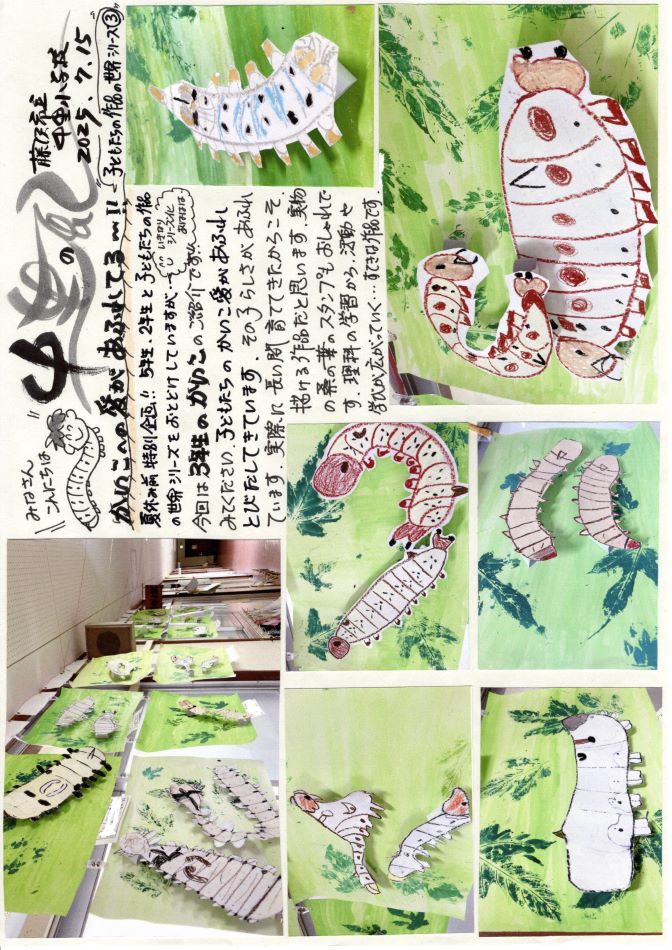 みなさん
こんにちは
中里の風
藤沢市立
中里小学校
2025.7.15
～子どもたちの作品の世界シリーズ③～
かいこへの愛があふれてる～!!
夏休み前 特別企画!! 5年生、2年生と子どもたちの作品
の世界シリーズをおとどけしていますが…
いきなり
シリーズ化
今回は3年生のかいこのご紹介です。
みてください、子どもたちのかいこ愛があふれ
とびだしてきています。その子らしさがあふれ
ています。実際に長い間育ててきたからこそ、
描ける作品だと思います。実物
の桑の葉のスタンプもおしゃれで
す。理科の学習から、活動や
学びが広がっていく…すてきな作品です。